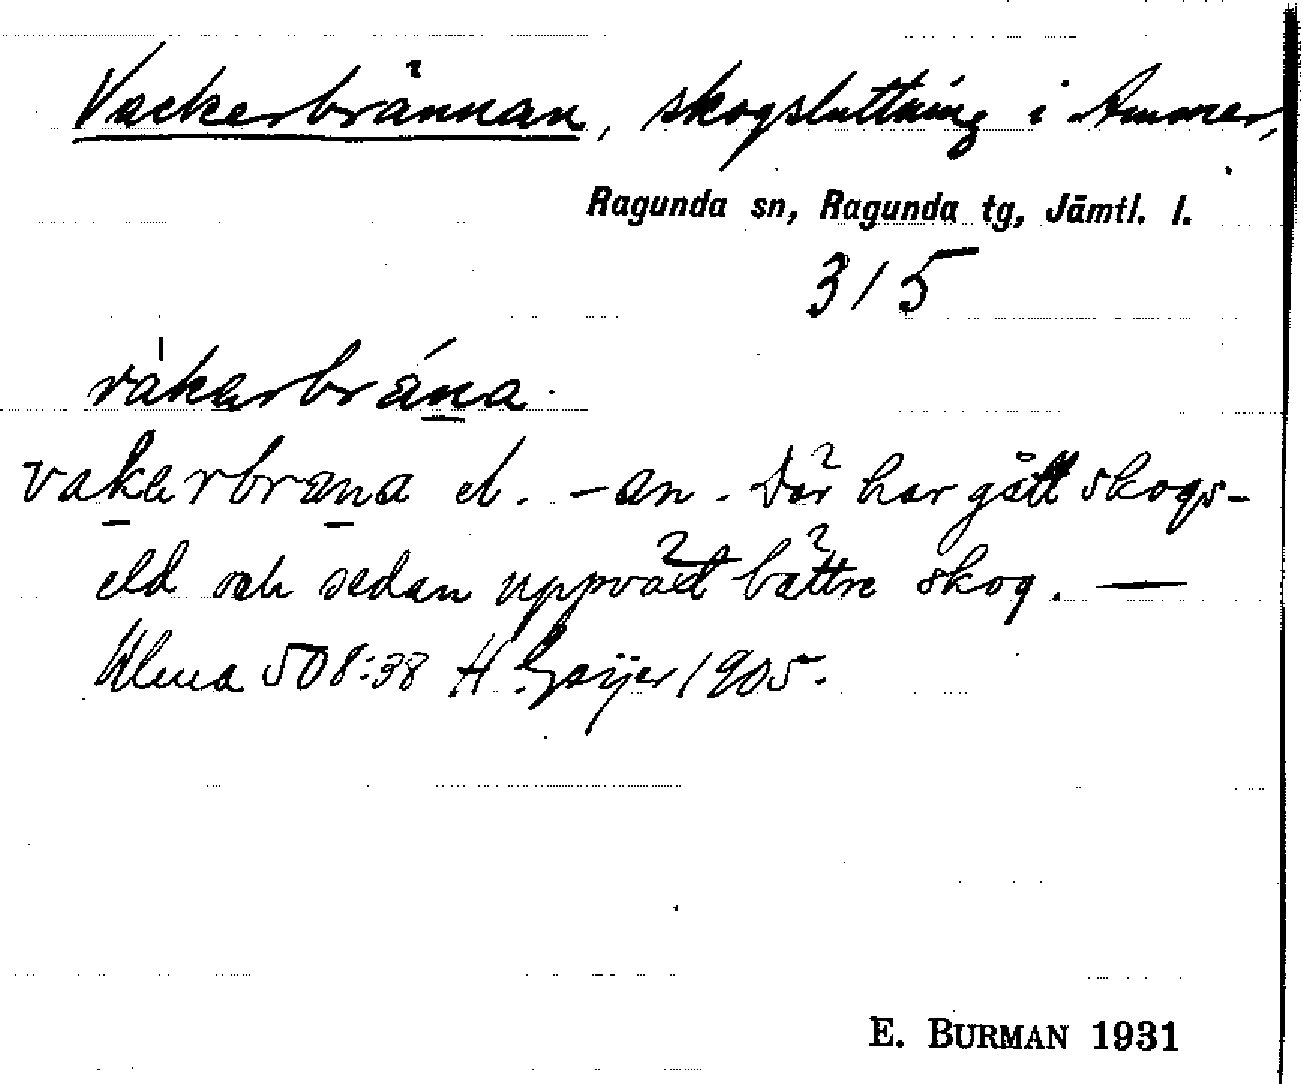 Vackerbrännan, skogsluttning i Ammer,
Ragunda sn, Ragunda tg, Jämtl. l.
3/5
vàkarbrána.
vakarbrana el. -an. Där har gått skogs-
eld och sedan uppväxt bättre skog. —
Ulma 508:38 H. Geijer 1905.
E. BURMAN 1931